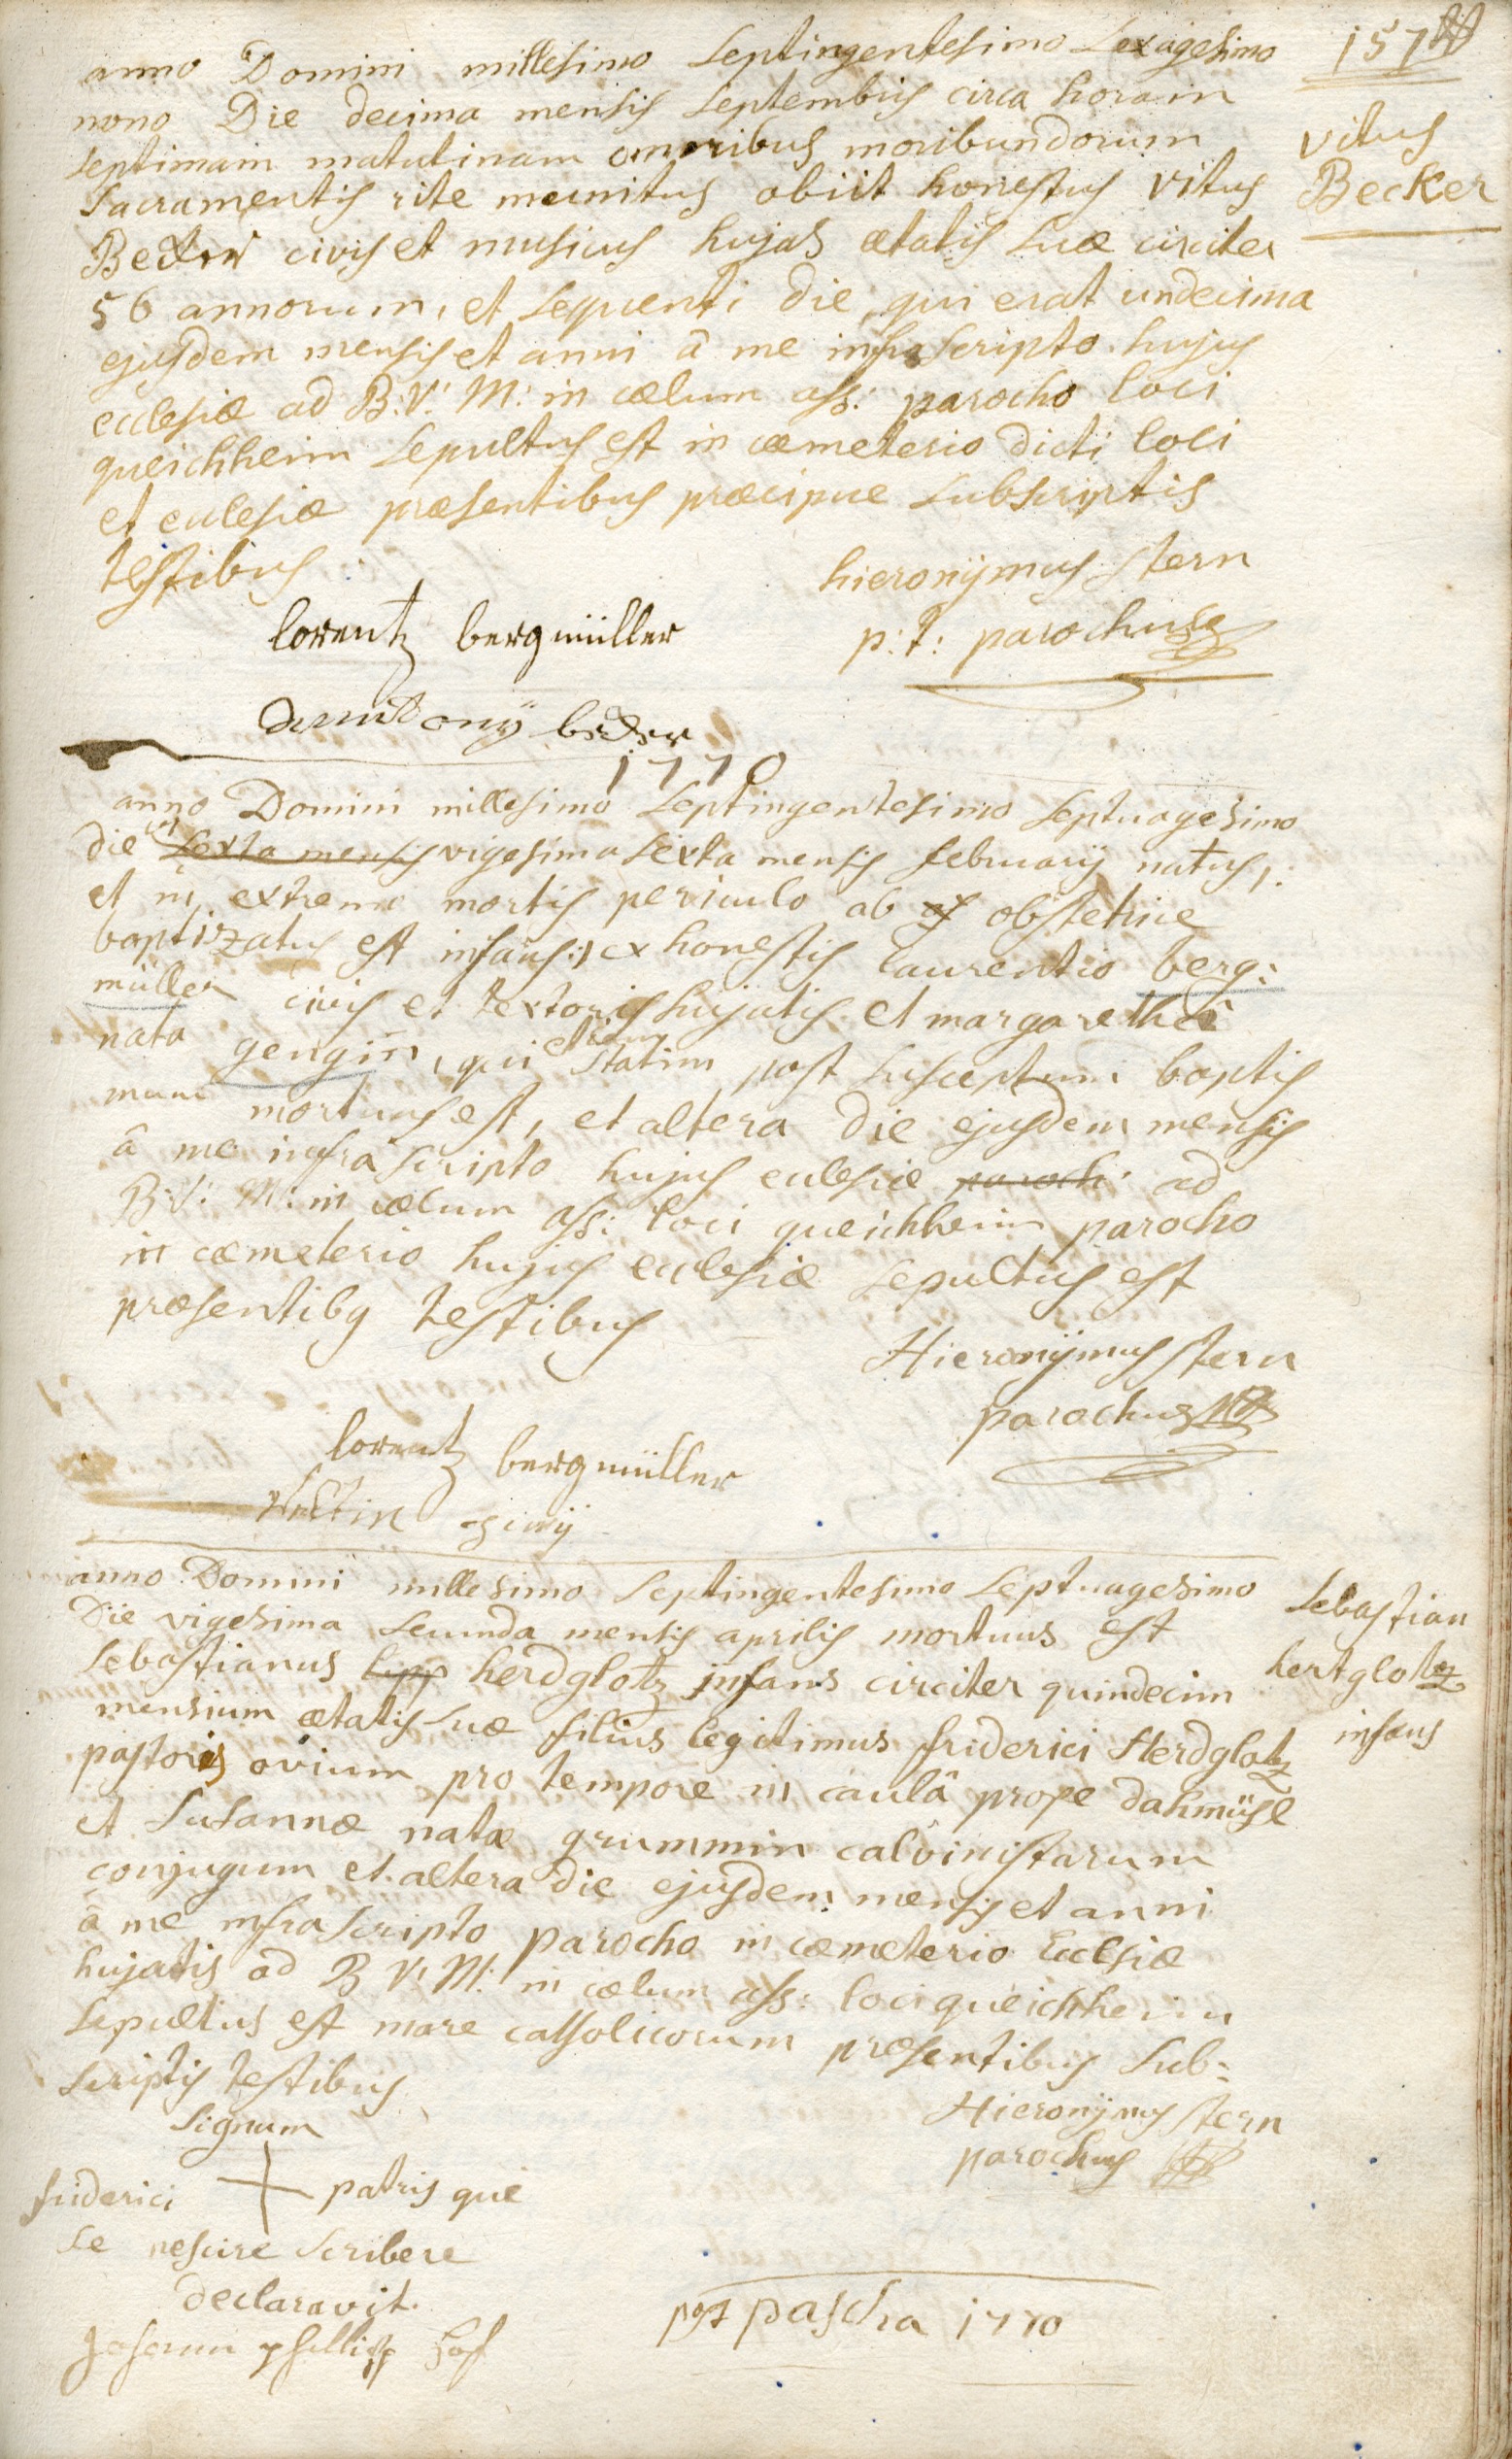 157
anno Domini millesimo Septingentesimo Sexagesimo
nono Die decima mensis Septembris circa horam
septimam matutinam omnibus moribundorum
Sacramentis rite munitus obiit honestus vitus
Becker civis et musicus hujas ætatis suæ circiter
56 annorum, et sequenti die, qui erat undecima
ejusdem mensis et anni â me infrascripto hujus
ecclesiæ ad B: V: M: in cælum ass: parocho loci
queichheim Sepultus est in cæmeterio dicti loci
et ecclesiæ præsentibus præcipue subscriptis
testibus
vitus
Becker
hieronÿmus stern
p: t: parochus
lorentz bergmüller
anntonÿ becker
1770
anno Domini millesimo Septingentesimo Septuagesimo
die Sexta mensis vigesima sexta mensis februarÿ natus,
et in extremo mortis periculo ab obstetrice
baptizatus est infans ex honestis laurentio berg:
müller civis et textoris hujatis et margaretha
nata gengin, qui etiam statim post susceptum baptis
mum mortuus est, et altera die ejusdem mensis
â me infra scripto hujus ecclesiæ paroch: ad
B: V: M: in cælum ass: loci queichheim parocho
in cæmeterio hujus ecclesiæ sepultus est
præsentibus testibus
Hieronÿmus stern
parochus
lorentz bergmüller
anno Domini millesimo Septingentesimo Septuagesimo
Die vigesima secunda mensis aprilis mortuus est
Sebastianus herdglotz infans circiter quindecim
mensium ætatis suæ filius legitimus friderici Herdglotz
pastoris ovium pro tempore in caulâ prope dahmühl
et Susannæ natæ grummin calvinistarum
conjugum et altera die ejusdem mensis et anni
â me infrascripto parocho in cæmeterio Ecclesiæ
hujatis ad B V: M: in cælum ass: loci queichheim
Sepultus est more catholicorum præsentibus sub:
scriptis testibus
Sebastian
hertglotz
infans
Hieronÿmus stern
parochus
Signum
friderici + patris que
se nescire scribere
declaravit.
post pascha 1770